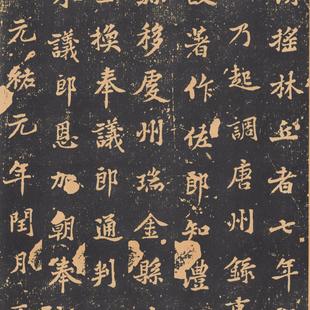 搖林丘者七年
乃起調唐州錄事
著作佐郎知澧
縣移虔州瑞金縣
換奉議郎通判
議郎恩加朝奉
元祐元年閏月